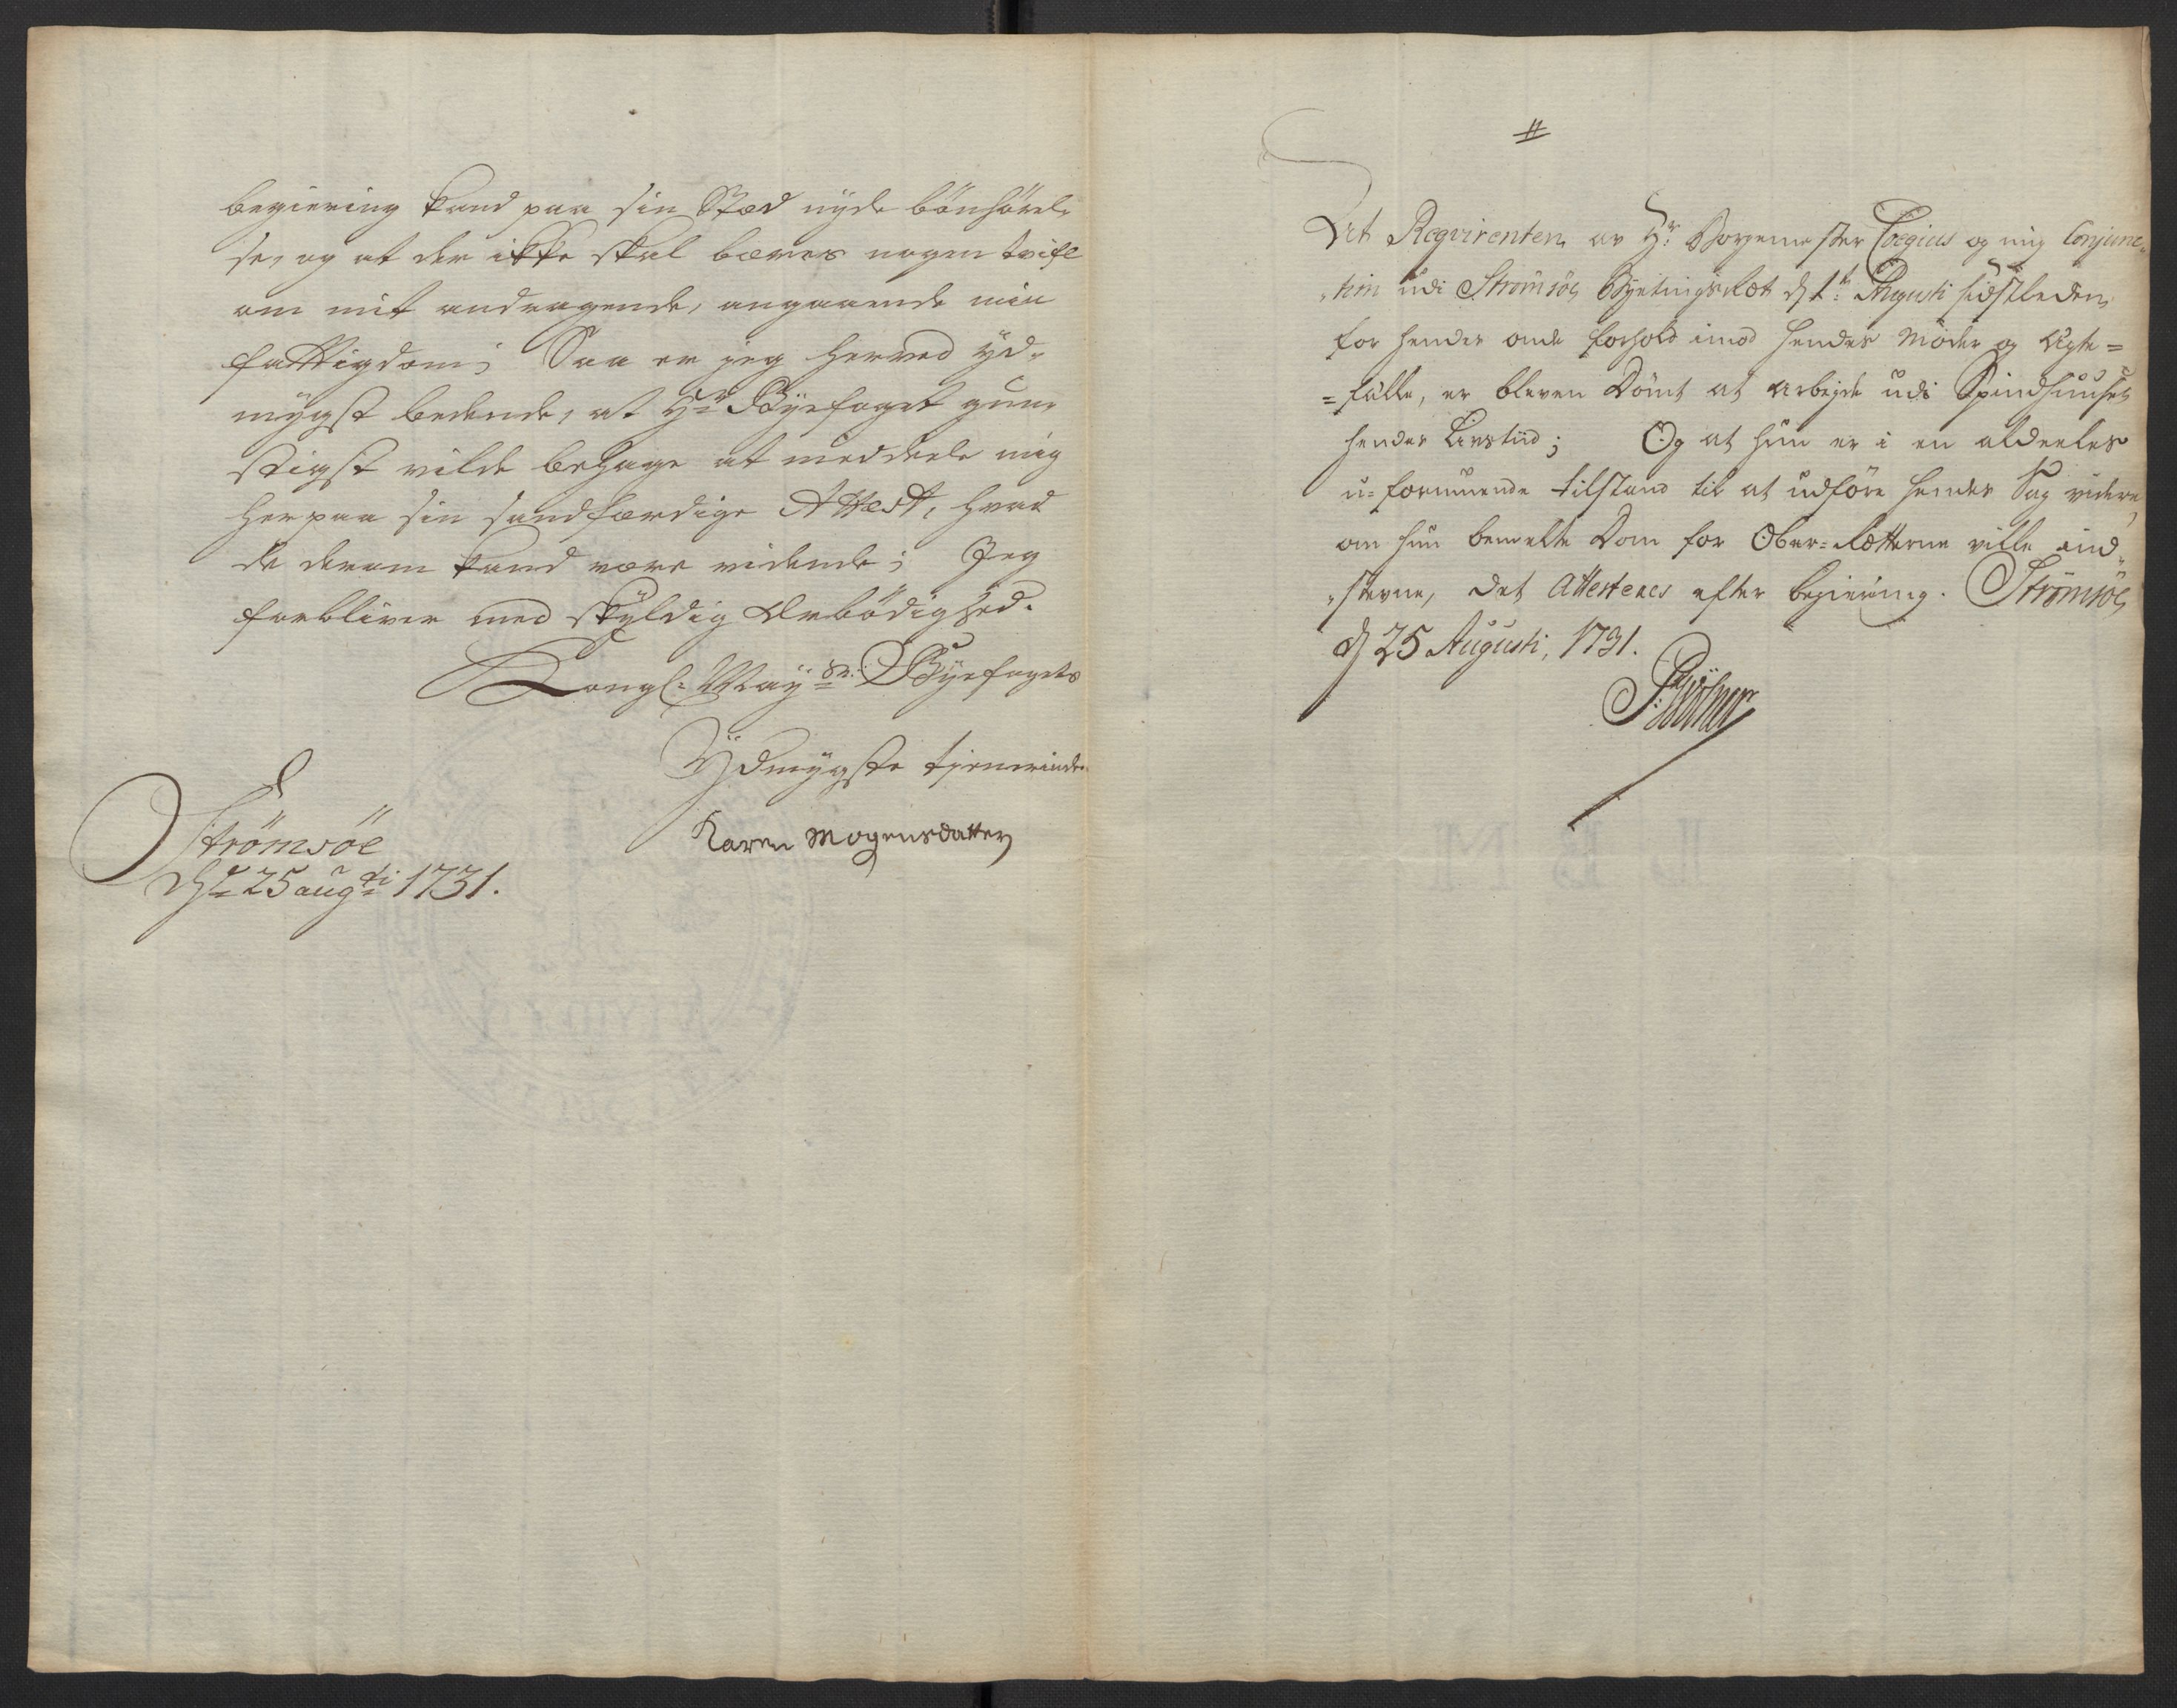 begiering kand paa sin Stæd nyde bönhörel-
se, og at der ikke skal bæres nogen tvifl
om mit andragende, angaaende min
fattigdom; Saa er jeg herved yd-
mygst bedende, at Hr Byefoget gun-
stigst vilde behage at meddeele mig
herpaa sin sandfærdige Attest, hvad
de derom kand være vidende; Jeg
forbliver med skyldig Ærbödighed.
Kongl: Mayts: Byefogets
Ydmygste tjenerinde
Karen Mogensdatter
Strömsöe
dn 25 augti 1731.
#
At Reqvirenten av Hr: Borgemester Coegius og mig Conjunc-
-tim udi Strömsöe Byetings Ræt d 1te Augusti sidstleden,
for hendes onde forhold imod hendes Moder og Ægte=
=fælle, er bleven Dömt at arbejde udi Spindhuuset
hendes Livstiid; Og at hun er i en aldeeles
u=formuende tilstand til at udföre hendes Sag videre,
om hun bemelte Dom for Ober=Rætterne ville ind-
-stevne, det Attesteres efter begiering. Strömsöe
d 25 Augusti, 1731.